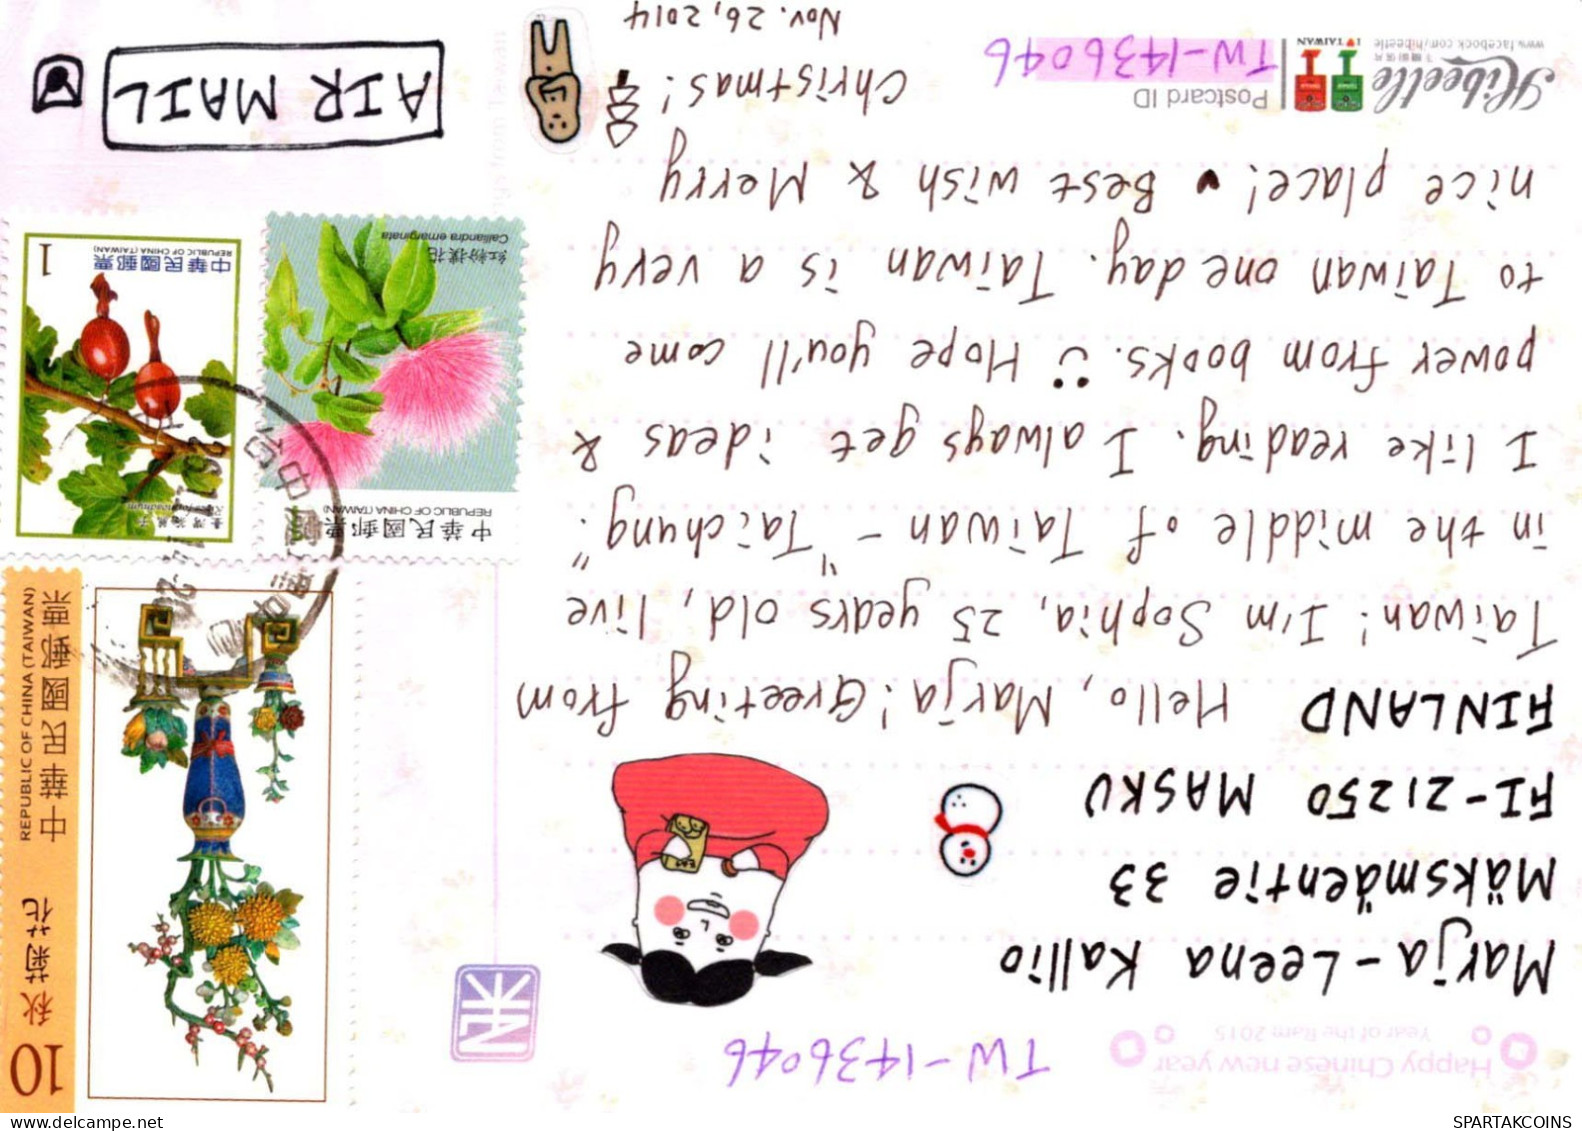 TW-1436046
Happy Chinese new year
Year of the Ram 2015
Marja-Leena Kallio
Mäksmäentie 33
FI-21250 MASKU
FINLAND
Hello, Marja! Greeting from
Taiwan! I'm Sophia, 25 years old, live
in the middle of Taiwan - "Taichung".
I like reading. I always get ideas &
power from books. Hope you'll come
to Taiwan one day. Taiwan is a very
nice place! ♥ Best wish & Merry
Christmas!
Nov. 26, 2014
Postcard ID
TW-1436046
I ♥ TAIWAN
Hibeetle
www.facebook.com/hibeetle
AIR MAIL
10
秋 菊花
中華民國郵票
REPUBLIC OF CHINA (TAIWAN)
中華民國郵票
REPUBLIC OF CHINA (TAIWAN)
紅粉撲花
Calliandra emarginata
1
中華民國郵票
REPUBLIC OF CHINA (TAIWAN)
SPARTAKCOINS